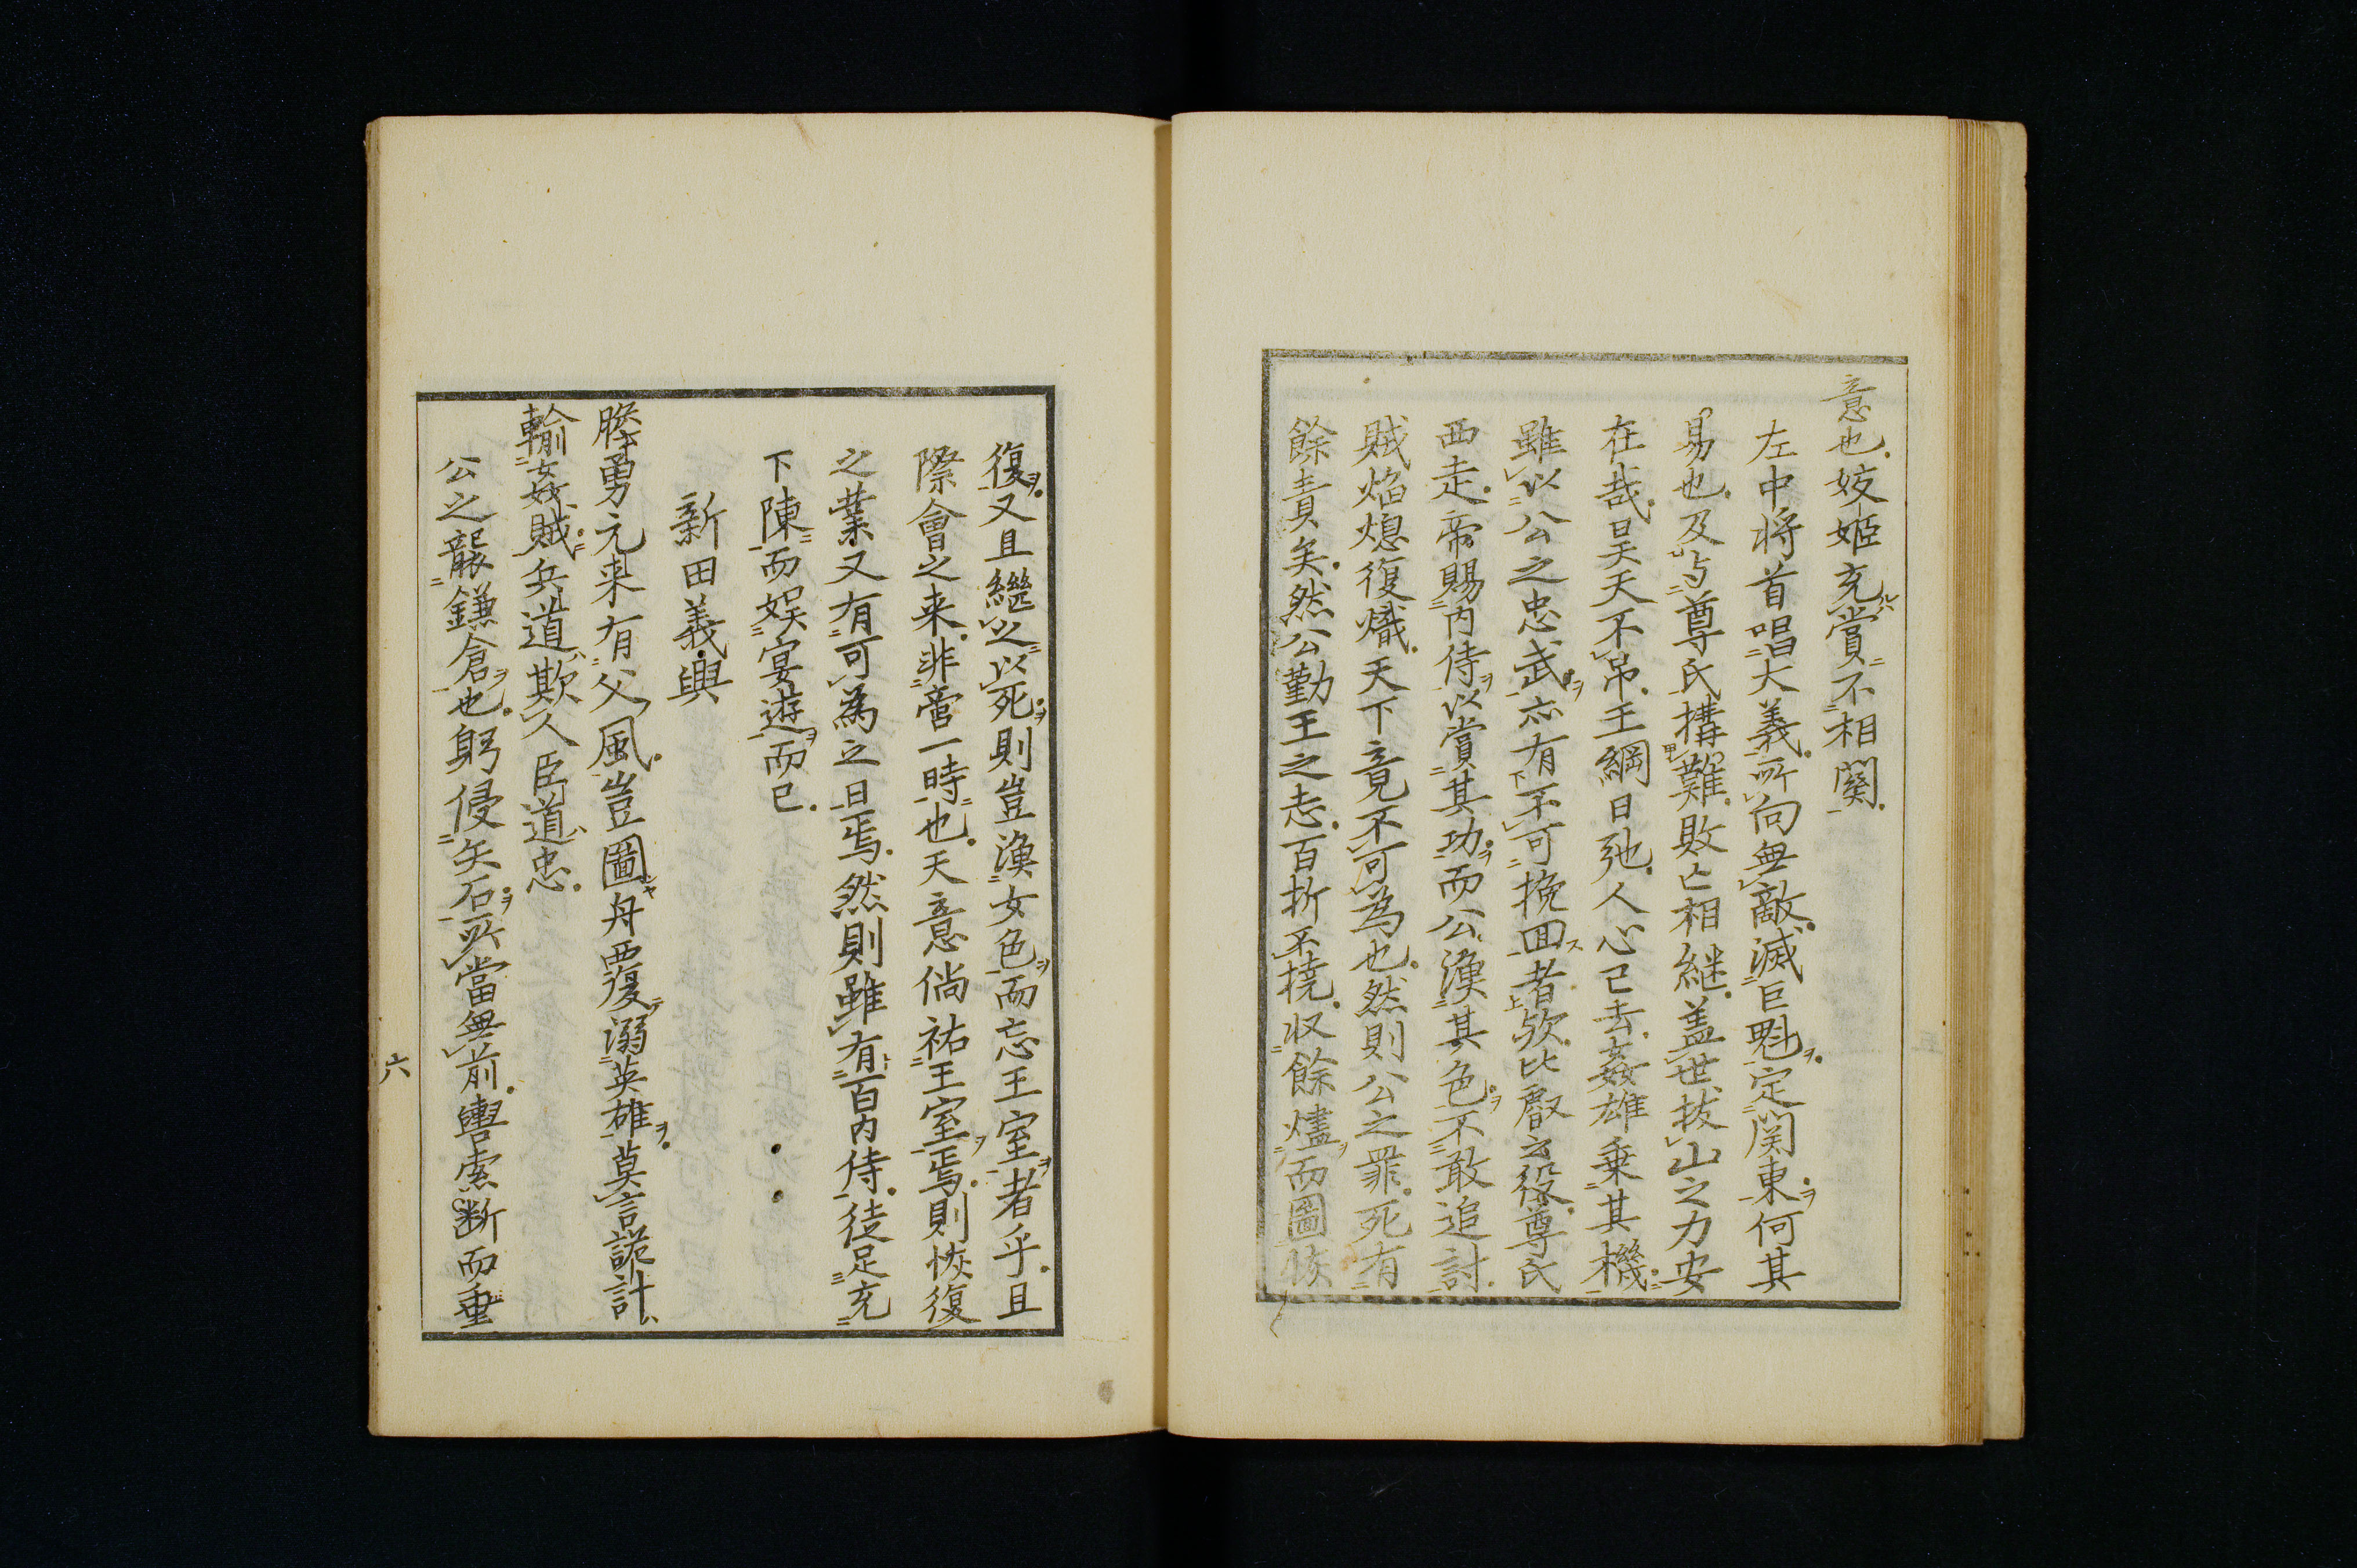 意也。姣姬充賞不相關。
左中将首唱大義。所向無敵。滅巨魁。定関東。何其
易也。及与尊氏搆難。敗亡相継。盖世抜山之力安
在哉。昊天不吊。王綱日弛。人心已去。姦雄乗其機。
雖以公之忠武。亦有不可挽回者欤。比殿云役。尊氏
西走。帝賜内侍以賞其功。而公漁其色。不敢追討。
賊焔熄復熾。天下竟不可為也。然則公之罪。死有
餘責矣。然公勤王之志。百折不撓。収餘燼而圖恢
復。又且継之以死。則豈漁女色而忘王室者乎。且
際會之来。非啻一時也。天意倘祐王室焉。則恢復
之業又有可為之日焉。然則雖有百内侍。徒足充
下陳而娯宴遊而已。
新田義興
膽勇元来有父風。豈圖舟覆溺英雄。莫言詭計
輸姦賊。兵道欺人臣道忠。
公之襲鎌倉也。躬侵矢石。所當無前。轡索断而垂
六